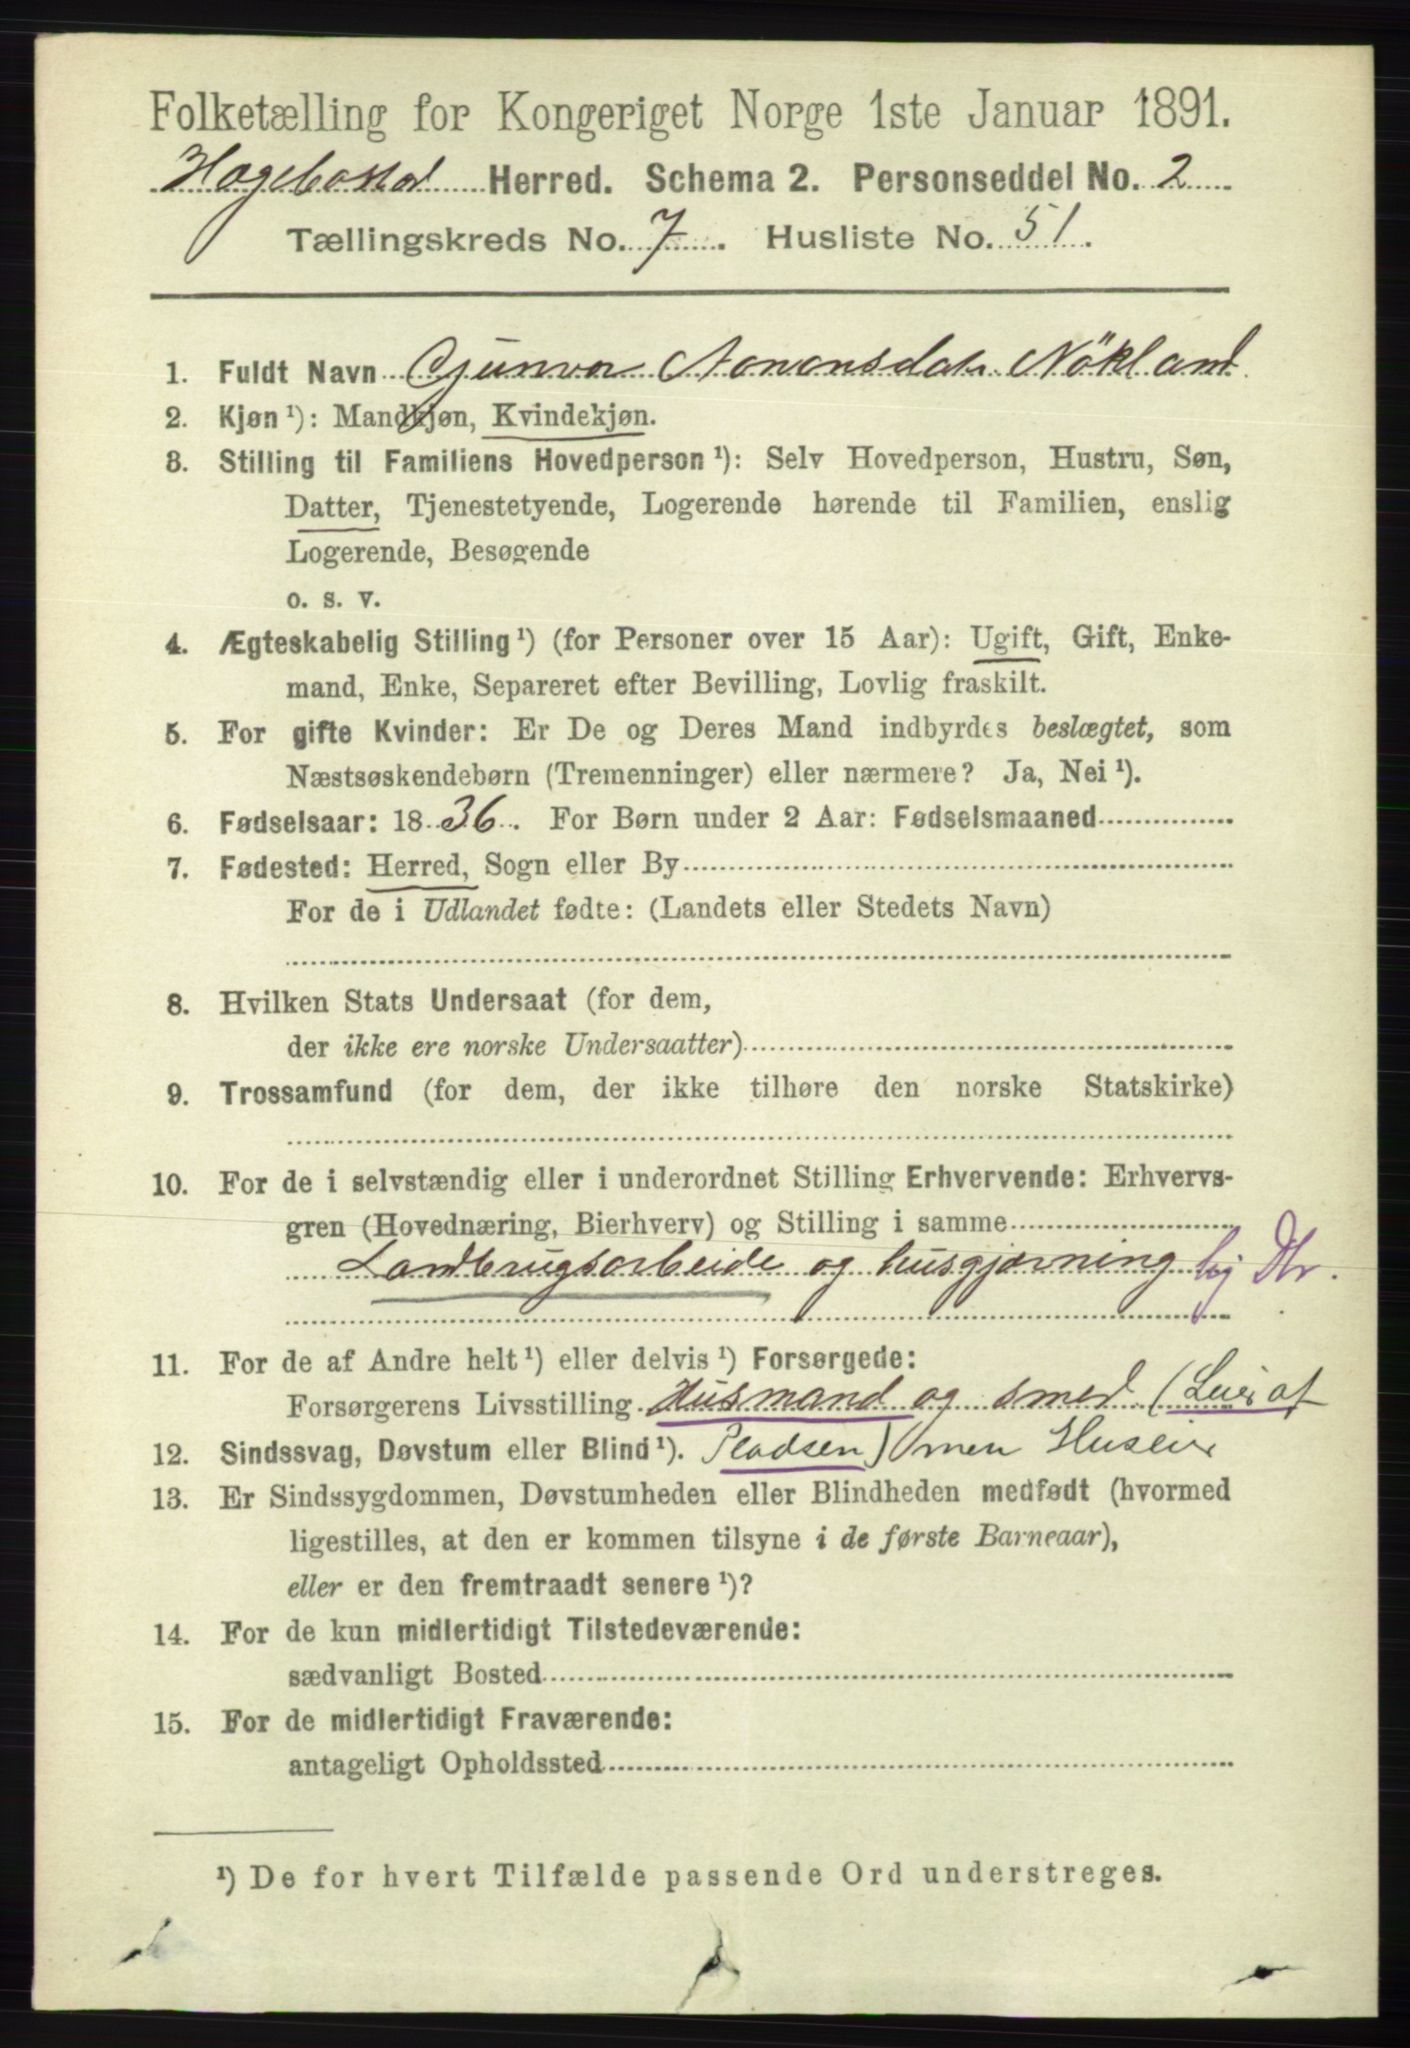 Folketælling for Kongeriget Norge 1ste Januar 1891.
Hægebostad Herred. Schema 2. Personseddel No. 2
Tællingskreds No. 7. Husliste No. 51.
1. Fuldt Navn Gunvor Aanonsdatr Nökland
2. Kjøn ¹): Mandkjøn, Kvindekjøn.
3. Stilling til Familiens Hovedperson ¹): Selv Hovedperson, Hustru, Søn,
Datter, Tjenestetyende, Logerende hørende til Familien, enslig
Logerende, Besøgende
o. s. v.
4. Ægteskabelig Stilling ¹) (for Personer over 15 Aar): Ugift, Gift, Enke-
mand, Enke, Separeret efter Bevilling, Lovlig fraskilt.
5. For gifte Kvinder: Er De og Deres Mand indbyrdes beslægtet, som
Næstsøskendebørn (Tremenninger) eller nærmere? Ja, Nei ¹).
6. Fødselsaar: 1836. For Børn under 2 Aar: Fødselsmaaned
7. Fødested: Herred, Sogn eller By
For de i Udlandet fødte: (Landets eller Stedets Navn)
8. Hvilken Stats Undersaat (for dem,
der ikke ere norske Undersaatter)
9. Trossamfund (for dem, der ikke tilhøre den norske Statskirke)
10. For de i selvstændig eller i underordnet Stilling Erhvervende: Erhvervs-
gren (Hovednæring, Bierhverv) og Stilling i samme
Landbrugsarbeide og husgjærning hj Dtr.
11. For de af Andre helt ¹) eller delvis ¹) Forsørgede:
Forsørgerens Livsstilling Husmand og smed (Leier af
12. Sindssvag, Døvstum eller Blind ¹). Pladsen) men Huseier
13. Er Sindssygdommen, Døvstumheden eller Blindheden medfødt (hvormed
ligestilles, at den er kommen tilsyne i de første Barneaar),
eller er den fremtraadt senere ¹)?
14. For de kun midlertidigt Tilstedeværende:
sædvanligt Bosted
15. For de midlertidigt Fraværende:
antageligt Opholdssted
¹) De for hvert Tilfælde passende Ord understreges.